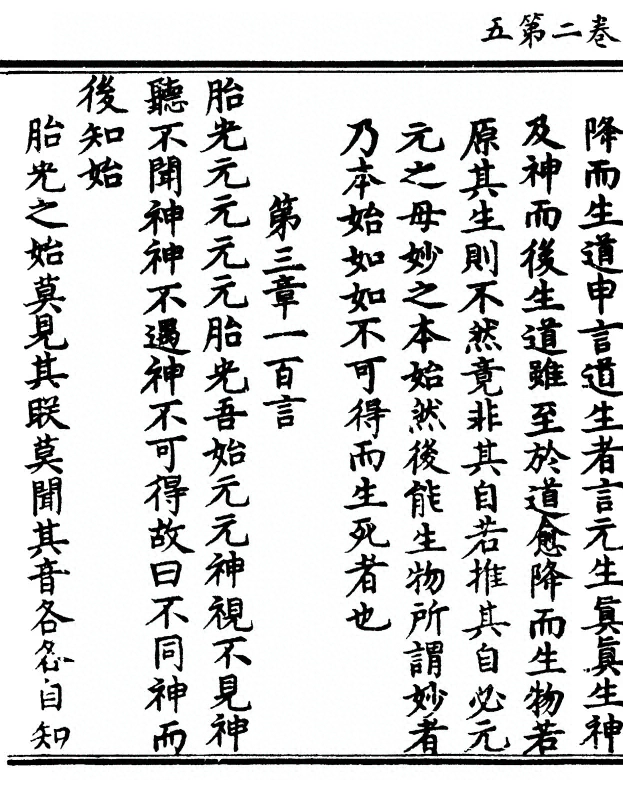 卷二第五
降而生道申言道生者言元生眞眞生神
及神而後生道雖至於道愈降而生物若
原其生則不然竟非其自若推其自必元
元之母妙之本始然後能生物所謂妙者
乃本始如如不可得而生死者也
第三章一百言
胎光元元元元胎光吾始元元神視不見神
聽不聞神神不遇神不可得故曰不同神而
後知始
胎光之始莫見其眹莫聞其音各各自知